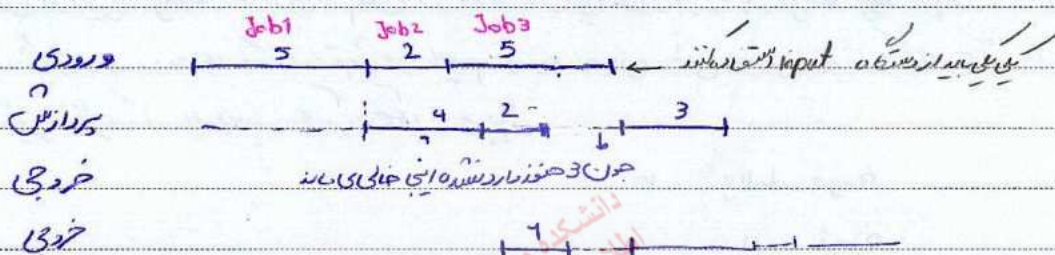 Job1 Job2 Job3
ورودی 5 2 5 ← یکی یکی باید از دستگاه input استفاده کنند
پردازش 4 2 3
خروجی چون 3 هنوز وارد نشده اینجا خالی می ماند
خروجی
دانشکده